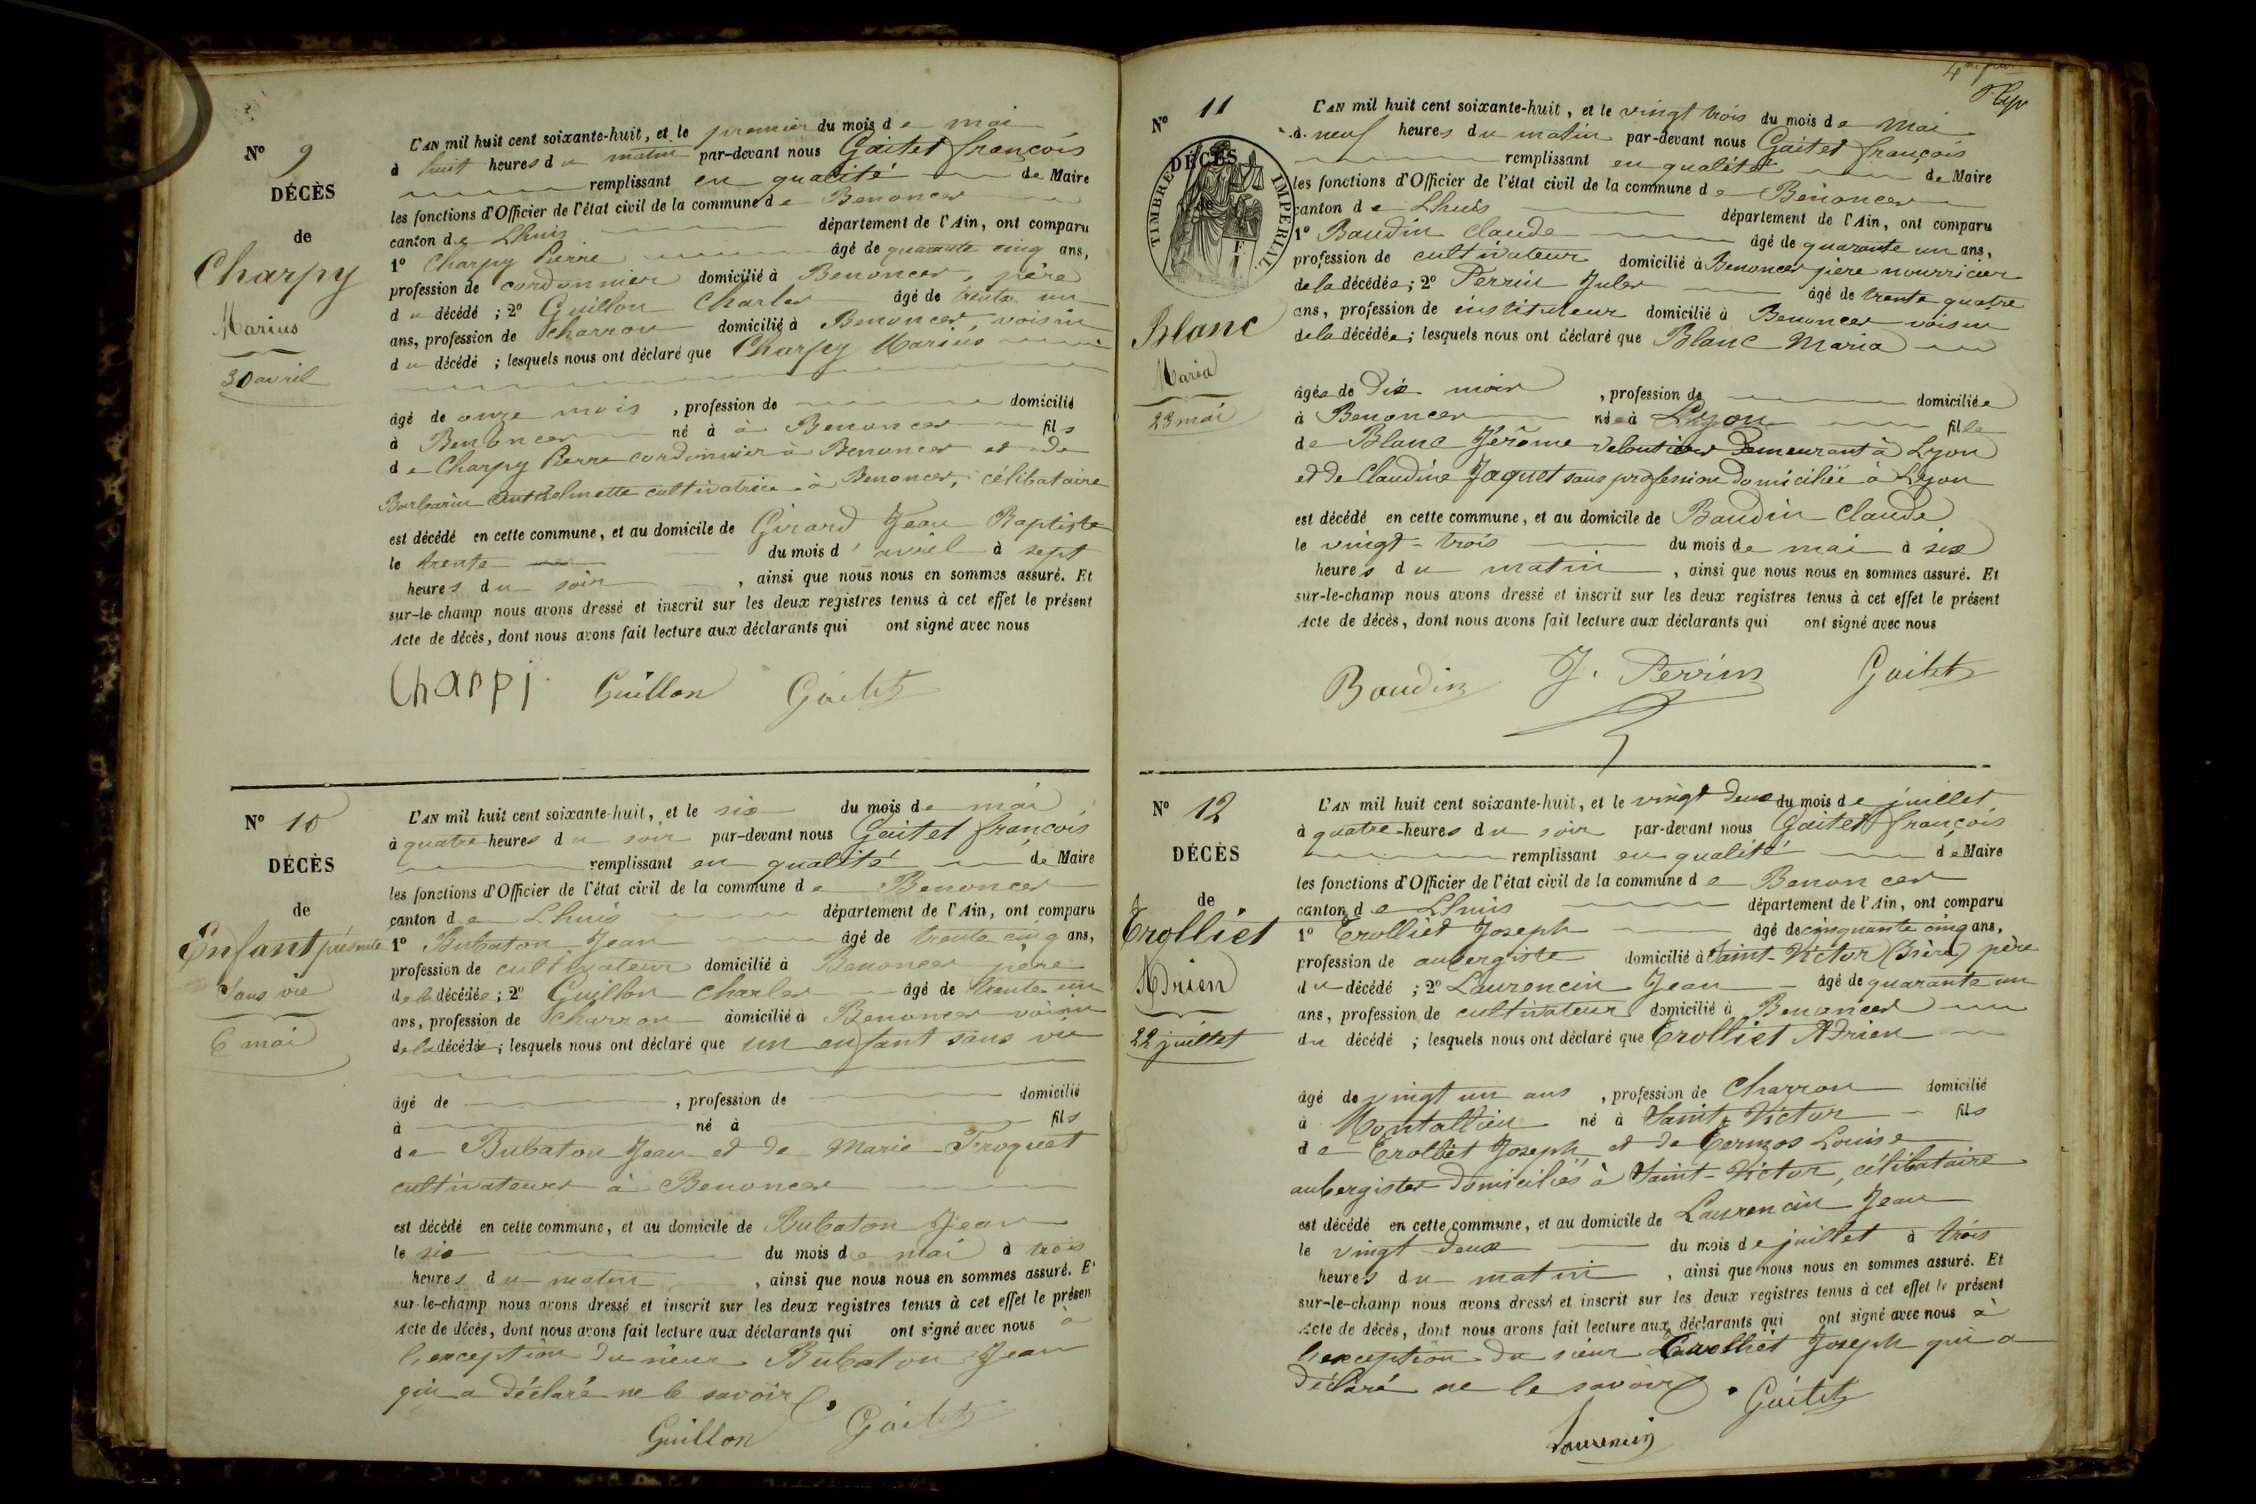 Nº 9
DÉCÈS
de
Charpy
Marius
30 avril
L'AN mil huit cent soixante-huit, et le premier du mois de mai
à huit heures du matin par-devant nous Gaitet françois
remplissant en qualité de Maire
les fonctions d'Officier de l'état civil de la commune de Benonces
canton de Lhuis département de l'Ain, ont comparu
1º Charpy Pierre âgé de quarante cinq ans,
profession de cordonnier domicilié à Benonces, père
du décédé ; 2º Guillon Charles âgé de trente un
ans, profession de charron domicilié à Benonces, voisin
du décédé ; lesquels nous ont déclaré que Charpy Marius
âgé de onze mois , profession de domicilié
à Benonces né à à Benonces fils
de Charpy Pierre cordonnier à Benonces et de
Barbarin Anthelmette cultivatrice à Benonces, célibataire
est décédé en cette commune, et au domicile de Girard Jean Baptiste
le trente du mois d'avril à sept
heures du soir , ainsi que nous nous en sommes assuré. Et
sur-le-champ nous avons dressé et inscrit sur les deux registres tenus à cet effet le présent
Acte de décès, dont nous avons fait lecture aux déclarants qui ont signé avec nous
Charpi Guillon Gaitet
Nº 10
DÉCÈS
de
Enfant présenté
Sans vie
6 mai
L'AN mil huit cent soixante-huit, et le six du mois de mai
à quatre heures du soir par-devant nous Gaitet françois
remplissant en qualité de Maire
les fonctions d'Officier de l'état civil de la commune de Benonces
canton de Lhuis département de l'Ain, ont comparu
1º Bubaton Jean âgé de trente cinq ans,
profession de cultivateur domicilié à Benonces père
de la décédée ; 2º Guillon Charles âgé de trente un
ans, profession de charron domicilié à Benonces voisin
de la décédée ; lesquels nous ont déclaré que un enfant sans vie
âgé de , profession de domicilié
à né à fils
de Bubaton Jean et de Marie Troquet
cultivateurs à Benonces
est décédé en cette commune, et au domicile de Bubaton Jean
le six du mois de mai à trois
heures du matin , ainsi que nous nous en sommes assuré. E
sur-le-champ nous avons dressé et inscrit sur les deux registres tenus à cet effet le présen
Acte de décès, dont nous avons fait lecture aux déclarants qui ont signé avec nous à
l'exception du sieur Bubaton Jean
qui a déclaré ne le savoir.
Guillon Gaitet
Nº 11
DÉCÈS
de
TIMBRE IMPÉRIAL
Blanc
Maria
23 mai
L'AN mil huit cent soixante-huit, et le vingt trois du mois de Mai
à neuf heures du matin par-devant nous Gaitet françois
remplissant en qualité de Maire
les fonctions d'Officier de l'état civil de la commune de Bénonces
canton de Lhuis département de l'Ain, ont comparu
1º Baudin Claude âgé de quarante un ans,
profession de cultivateur domicilié à Benonces père nourricier
de la décédée ; 2º Perrin Jules âgé de trente quatre
ans, profession de instituteur domicilié à Benonces voisin
de la décédée ; lesquels nous ont déclaré que Blanc Maria
âgée de Dix mois , profession de domiciliée
à Benonces née à Lyon fille
de Blanc Jérôme veloutier Demeurant à Lyon
et de Claudine Jaquet sans profession domiciliée à Lyon
est décédé en cette commune, et au domicile de Baudin Claude
le vingt-trois du mois de mai à six
heures du matin , ainsi que nous nous en sommes assuré. Et
sur-le-champ nous avons dressé et inscrit sur les deux registres tenus à cet effet le présent
Acte de décès, dont nous avons fait lecture aux déclarants qui ont signé avec nous
Baudin J. Perrin Gaitet
Nº 12
DÉCÈS
de
Trolliet
Adrien
22 juillet
L'AN mil huit cent soixante-huit, et le vingt deux du mois de juillet
à quatre heures du soir par-devant nous Gaitet françois
remplissant en qualité de Maire
les fonctions d'Officier de l'état civil de la commune de Benonces
canton de Lhuis département de l'Ain, ont comparu
1º Trolliet Joseph âgé de cinquante cinq ans,
profession de aubergiste domicilié à Saint-Victor (Isère) père
du décédé ; 2º Laurencin Jean âgé de quarante un
ans, profession de cultivateur domicilié à Benonces
du décédé ; lesquels nous ont déclaré que Trolliet Adrien
âgé de vingt un ans , profession de Charron domicilié
à Montallieu né à Saint-Victor fils
de Trolliet Joseph et de Louise
aubergistes domiciliés à Saint-Victor, célibataire
est décédé en cette commune, et au domicile de Laurencin Jean
le vingt deux du mois de juillet à trois
heures du matin , ainsi que nous nous en sommes assuré. Et
sur-le-champ nous avons dressé et inscrit sur les deux registres tenus à cet effet le présent
Acte de décès, dont nous avons fait lecture aux déclarants qui ont signé avec nous à
l'exception du sieur Trolliet Joseph qui a
déclaré ne le savoir. Gaitet
Laurencin